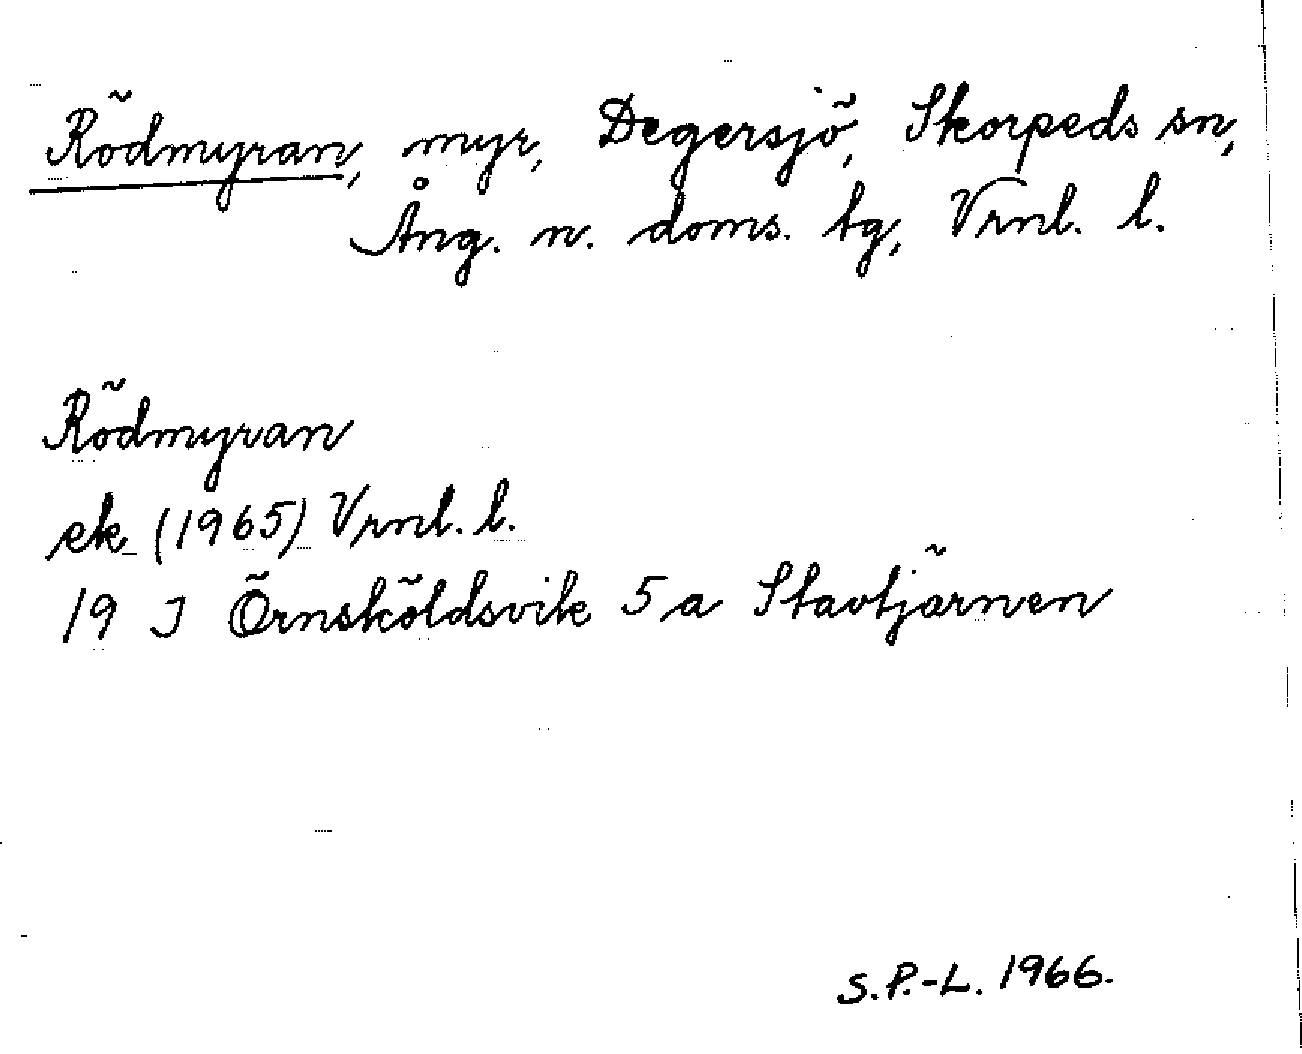 Rödmyran, myr, Degersjö, Skorpeds sn,
Ång. n. doms. tg, Vrnl. l.
Rödmyran
ek (1965) Vrnl. l.
19 J Örnsköldsvik 5 a Stavtjärnen
S.P.-L. 1966.